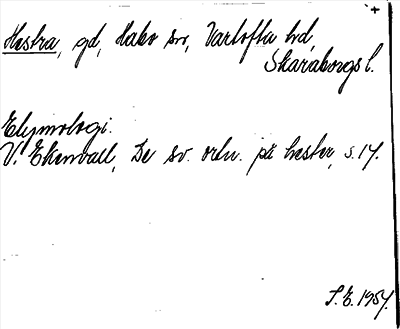 Hestra, gd, Habo sn, Vartofta hd,
Skaraborgs l.
Etymologi.
V. Ekenvall, De sv. ortn. på hester, s. 14.
S.E. 1957.